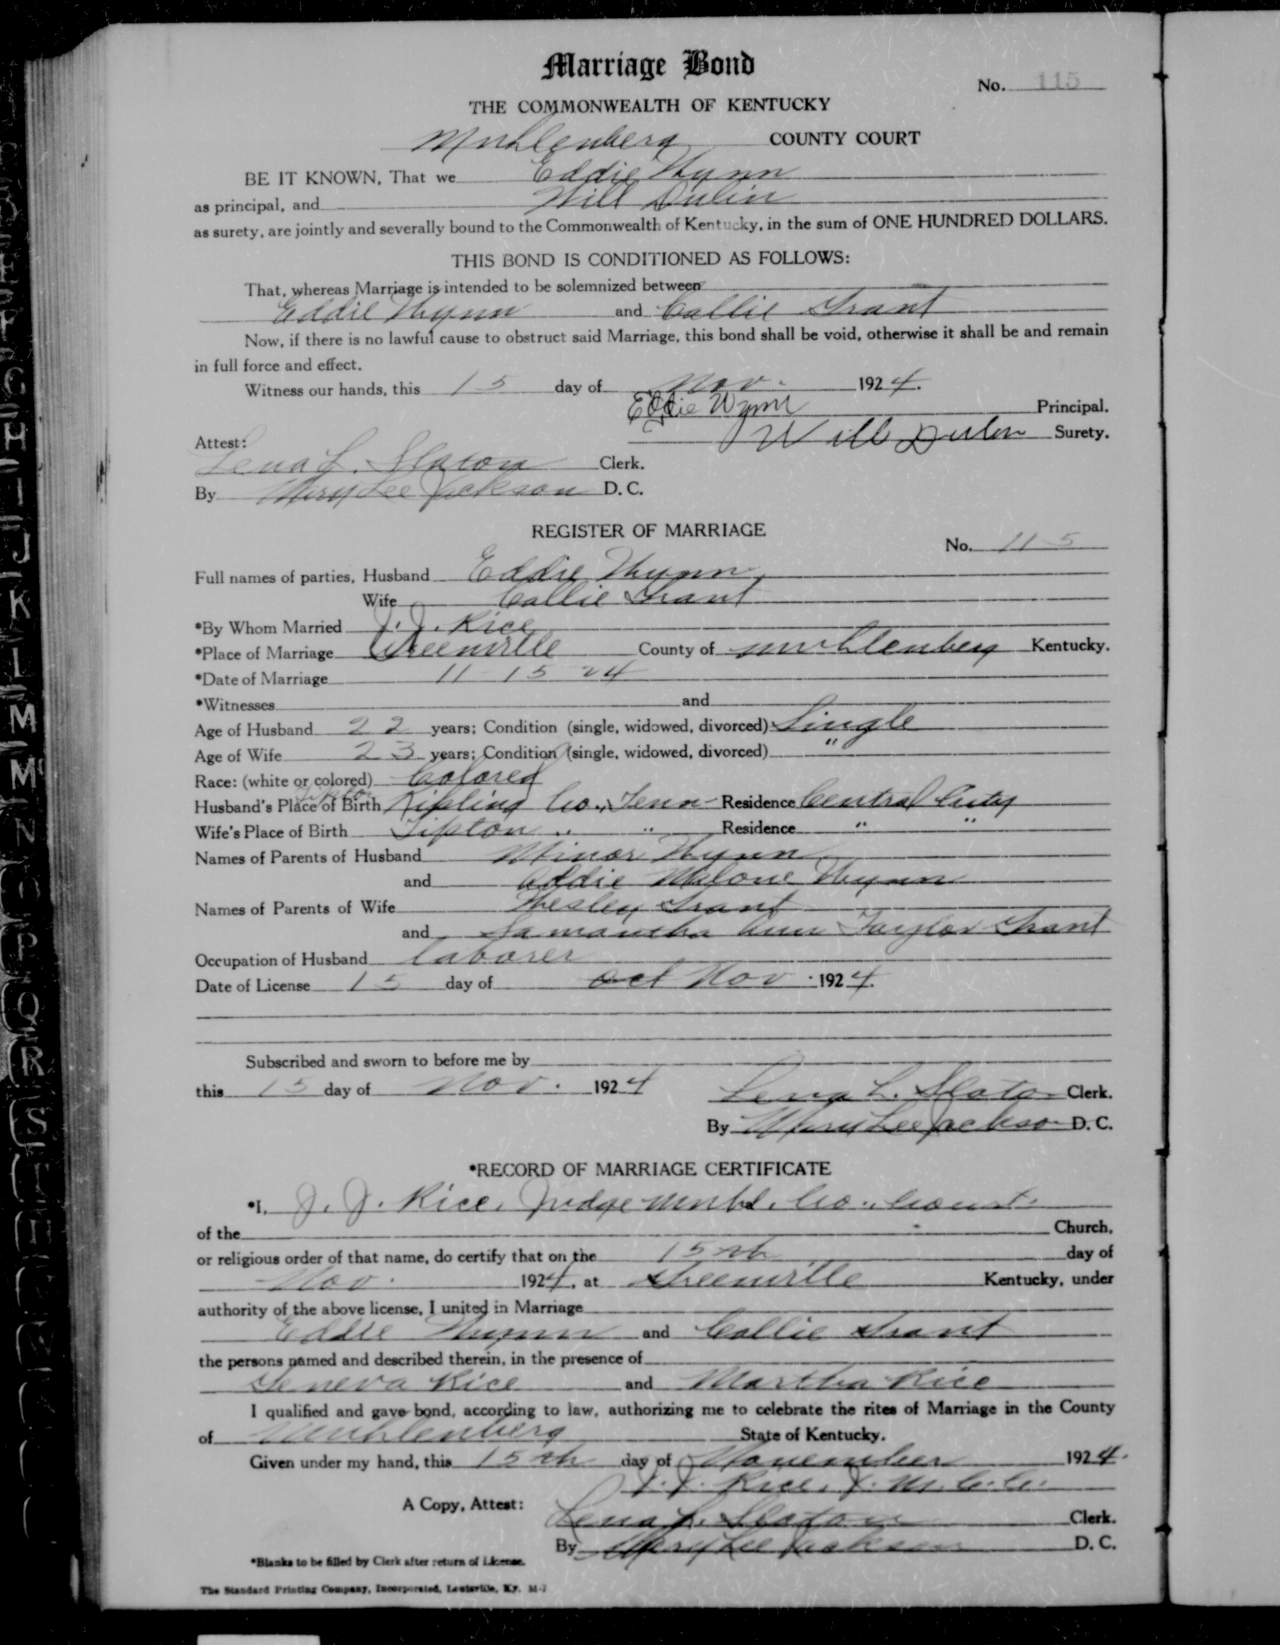 Marriage Bond
No. 115
THE COMMONWEALTH OF KENTUCKY
Muhlenberg COUNTY COURT
BE IT KNOWN, That we Eddie Wynn
as principal, and Will Dulin
as surety, are jointly and severally bound to the Commonwealth of Kentucky, in the sum of ONE HUNDRED DOLLARS.
THIS BOND IS CONDITIONED AS FOLLOWS:
That, whereas Marriage is intended to be solemnized between
Eddie Wynn and Callie Grant
Now, if there is no lawful cause to obstruct said Marriage, this bond shall be void, otherwise it shall be and remain
in full force and effect.
Witness our hands, this 15 day of Nov. 1924.
Eddie Wynn Principal.
Will Dulin Surety.
Attest:
Lena L. Slaton Clerk.
By Mary Lee Jackson D. C.
REGISTER OF MARRIAGE
No. 115
Full names of parties, Husband Eddie Wynn
Wife Callie Grant
*By Whom Married J. J. Rice
*Place of Marriage Greenville County of Muhlenberg Kentucky.
*Date of Marriage 11 15 24
*Witnesses and
Age of Husband 22 years; Condition (single, widowed, divorced) Single
Age of Wife 23 years; Condition (single, widowed, divorced) "
Race: (white or colored) Colored
Tipton
Husband's Place of Birth Kipling Co., Tenn Residence Central City
Wife's Place of Birth Tipton " " Residence " "
Names of Parents of Husband Minor Wynn
and Addie Malone Wynn
Names of Parents of Wife Wesley Grant
and Samantha Ann Taylor Grant
Occupation of Husband laborer
Date of License 15 day of Oct Nov. 1924.
Subscribed and sworn to before me by
this 15 day of Nov. 1924
Lena L. Slaton Clerk.
By Mary Lee Jackson D. C.
*RECORD OF MARRIAGE CERTIFICATE
*I, J. J. Rice, Judge Muhl. Co. Court.
of the Church,
or religious order of that name, do certify that on the 15th day of
Nov. 1924, at Greenville Kentucky, under
authority of the above license, I united in Marriage
Eddie Wynn and Callie Grant
the persons named and described therein, in the presence of
Geneva Rice and Martha Rice
I qualified and gave bond, according to law, authorizing me to celebrate the rites of Marriage in the County
of Muhlenberg State of Kentucky.
Given under my hand, this 15th day of November 1924.
J. J. Rice, J. M. C. C.
A Copy, Attest:
Lena L. Slaton Clerk.
By Mary Lee Jackson D. C.
*Blanks to be filled by Clerk after return of License.
The Standard Printing Company, Incorporated, Louisville, Ky. M-7